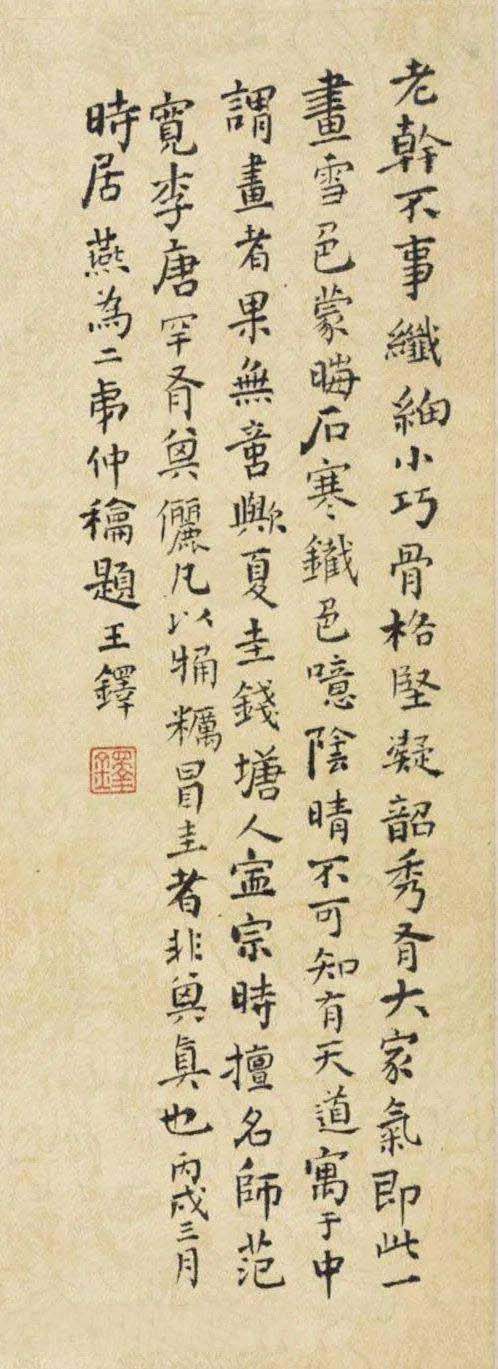 老幹不事纖細小巧骨格堅凝韶秀有大家氣即此一
畫雪色蒙晦石寒鐵色噫陰晴不可知有天道寓于中
謂畫者果無意歟夏圭錢塘人寧宗時擅名師范
寬李唐罕有其儷凡以觕糲冒圭者非其真也丙戌三月
時居燕為二弟仲龢題王鐸